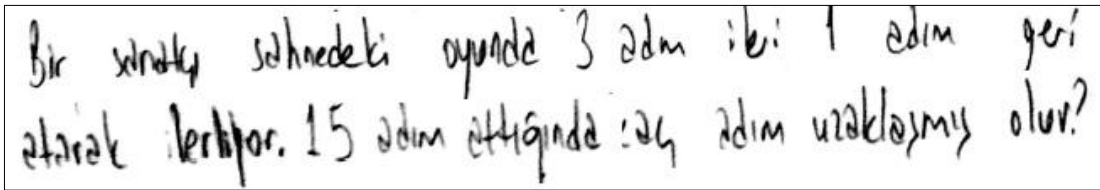 Bir sanatçı sahnedeki oyunda 3 adım ileri 1 adım geri
atarak ilerliyor. 15 adım attığında kaç adım uzaklaşmış olur?